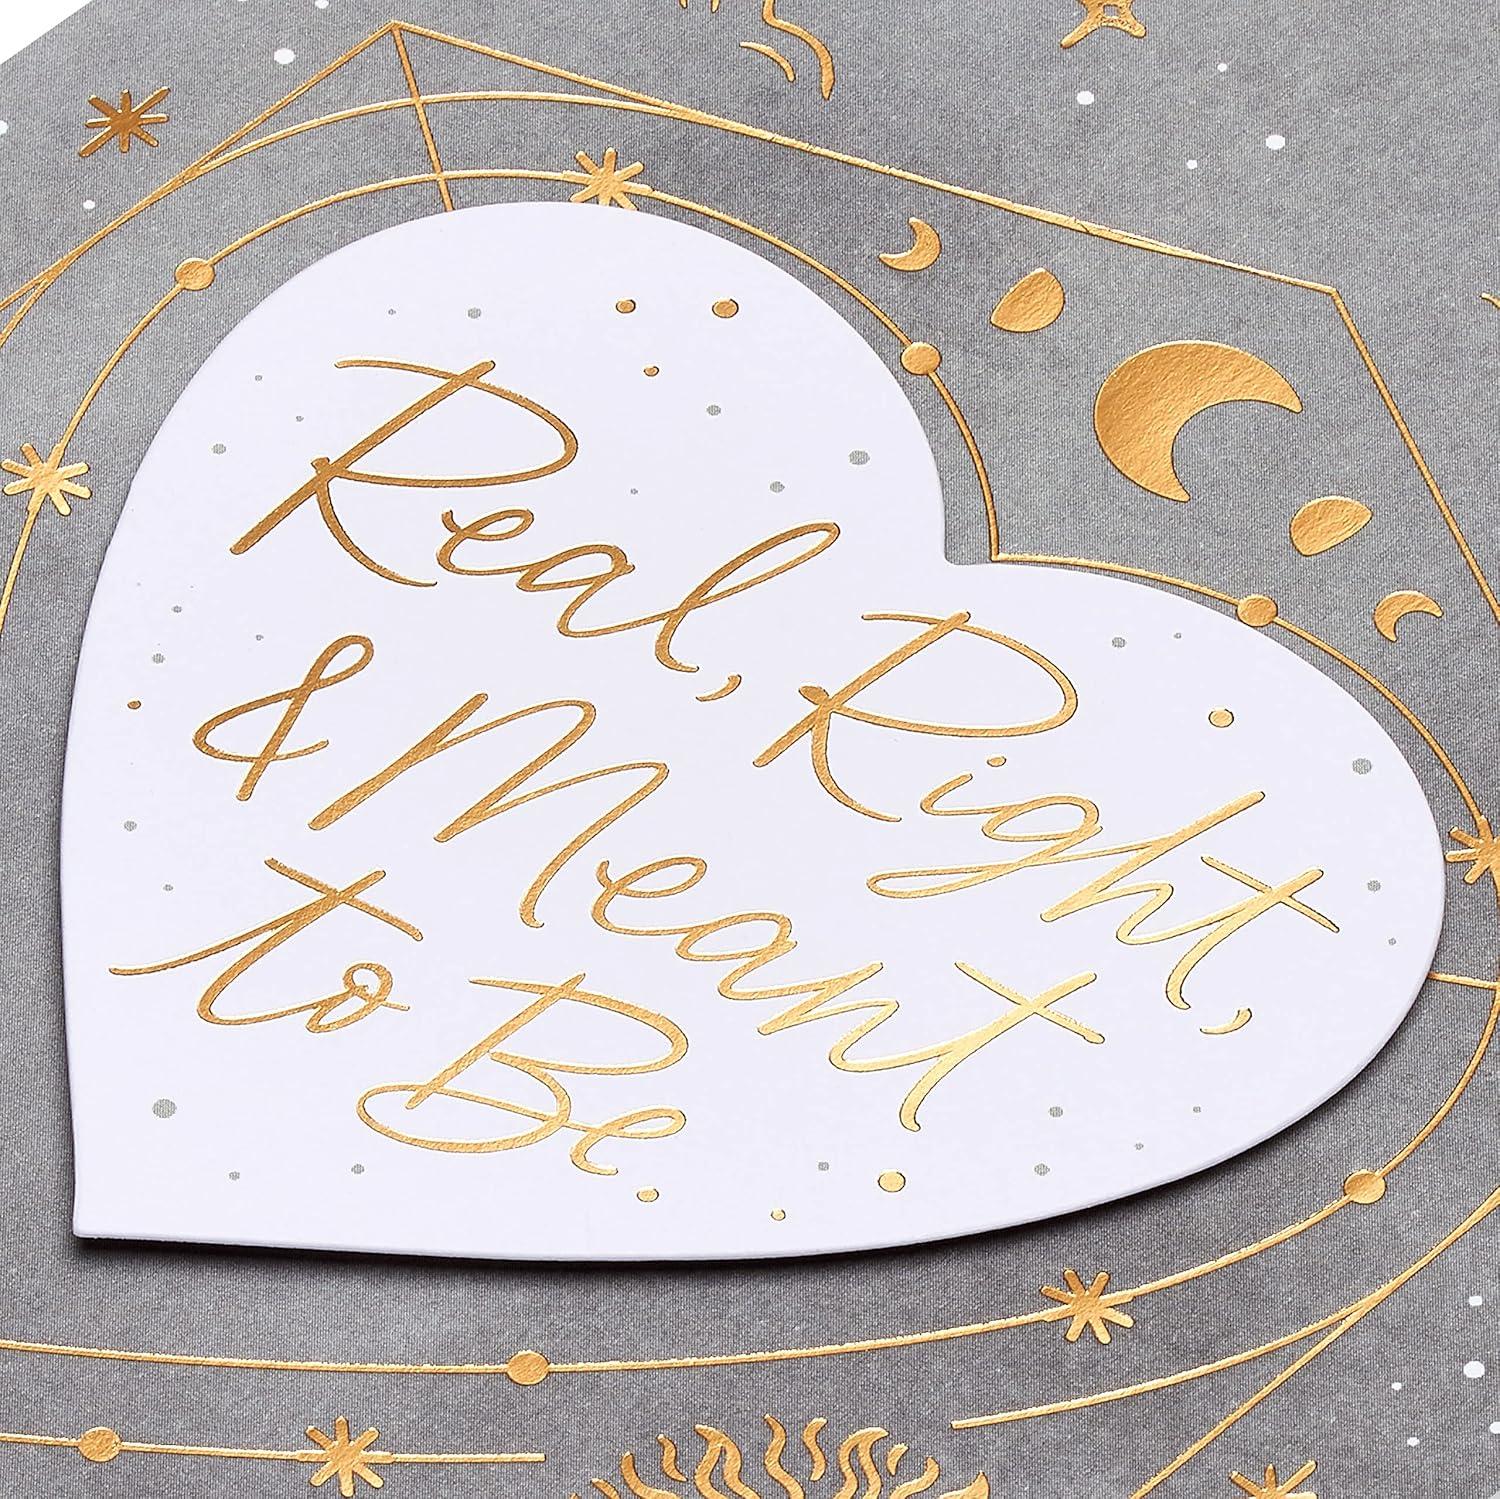 Real, Right,
& Meant
to Be.